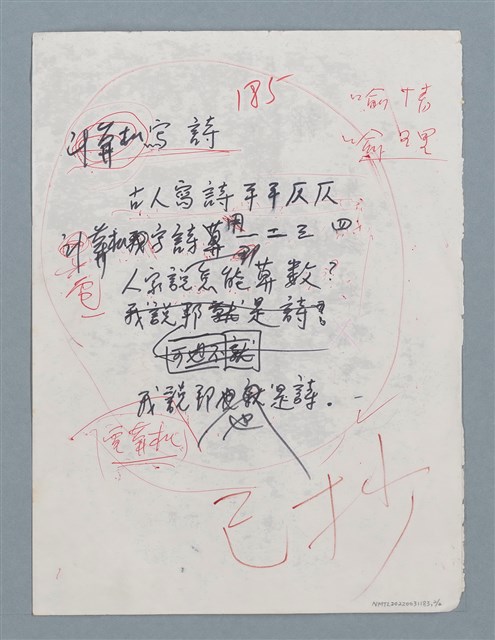 185
喻情
喻理
計算机寫詩
古人寫詩平平仄仄
計算机寫詩算用一二三四
人家說怎能算數?
我說那就是詩
可也不就
我說那也就是詩。
也
電
電算机
已抄
NMTL20220031183